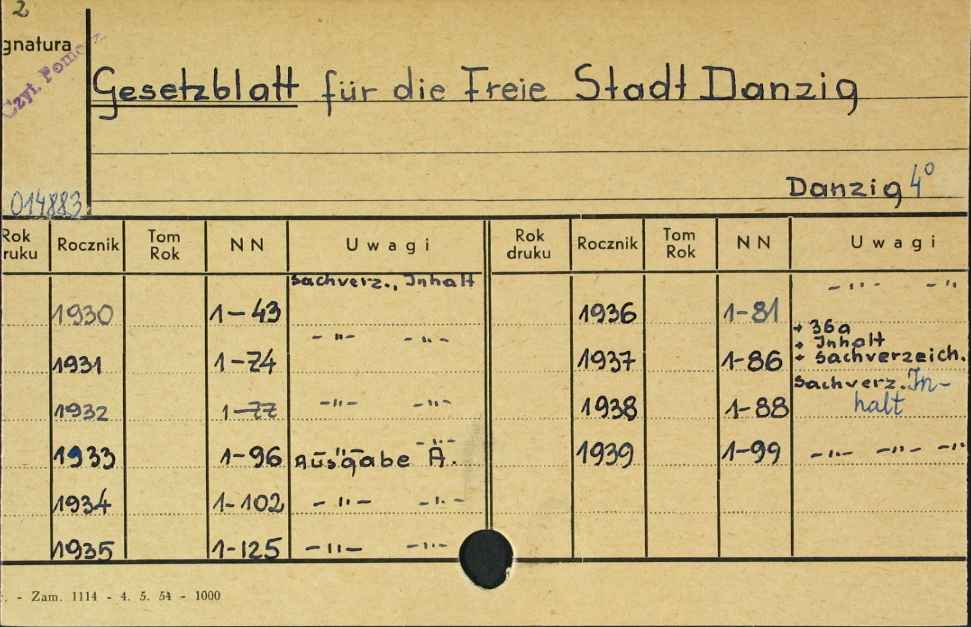 2
gnatura
Czyt. Pomo
Gesetzblatt für die Freie Stadt Danzig
Danzig 4°
014883
Rok druku Rocznik Tom Rok NN Uwagi Rok druku Rocznik Tom Rok NN Uwagi
1930 1-43 Sachverz., Inhalt
1931 1-74 -"- -"-
1932 1-77 -"- -"-
1933 1-96 Ausgabe A. -"- -"-
1934 1-102 -"- -"-
1935 1-125 -"- -"-
1936 1-81 -"- -"-
1937 1-86 + 36a
+ Inhalt
+ Sachverzeich.
1938 1-88 Sachverz. In-
halt
1939 1-99 -"- -"- -"-
. - Zam. 1114 - 4. 5. 54 - 1000